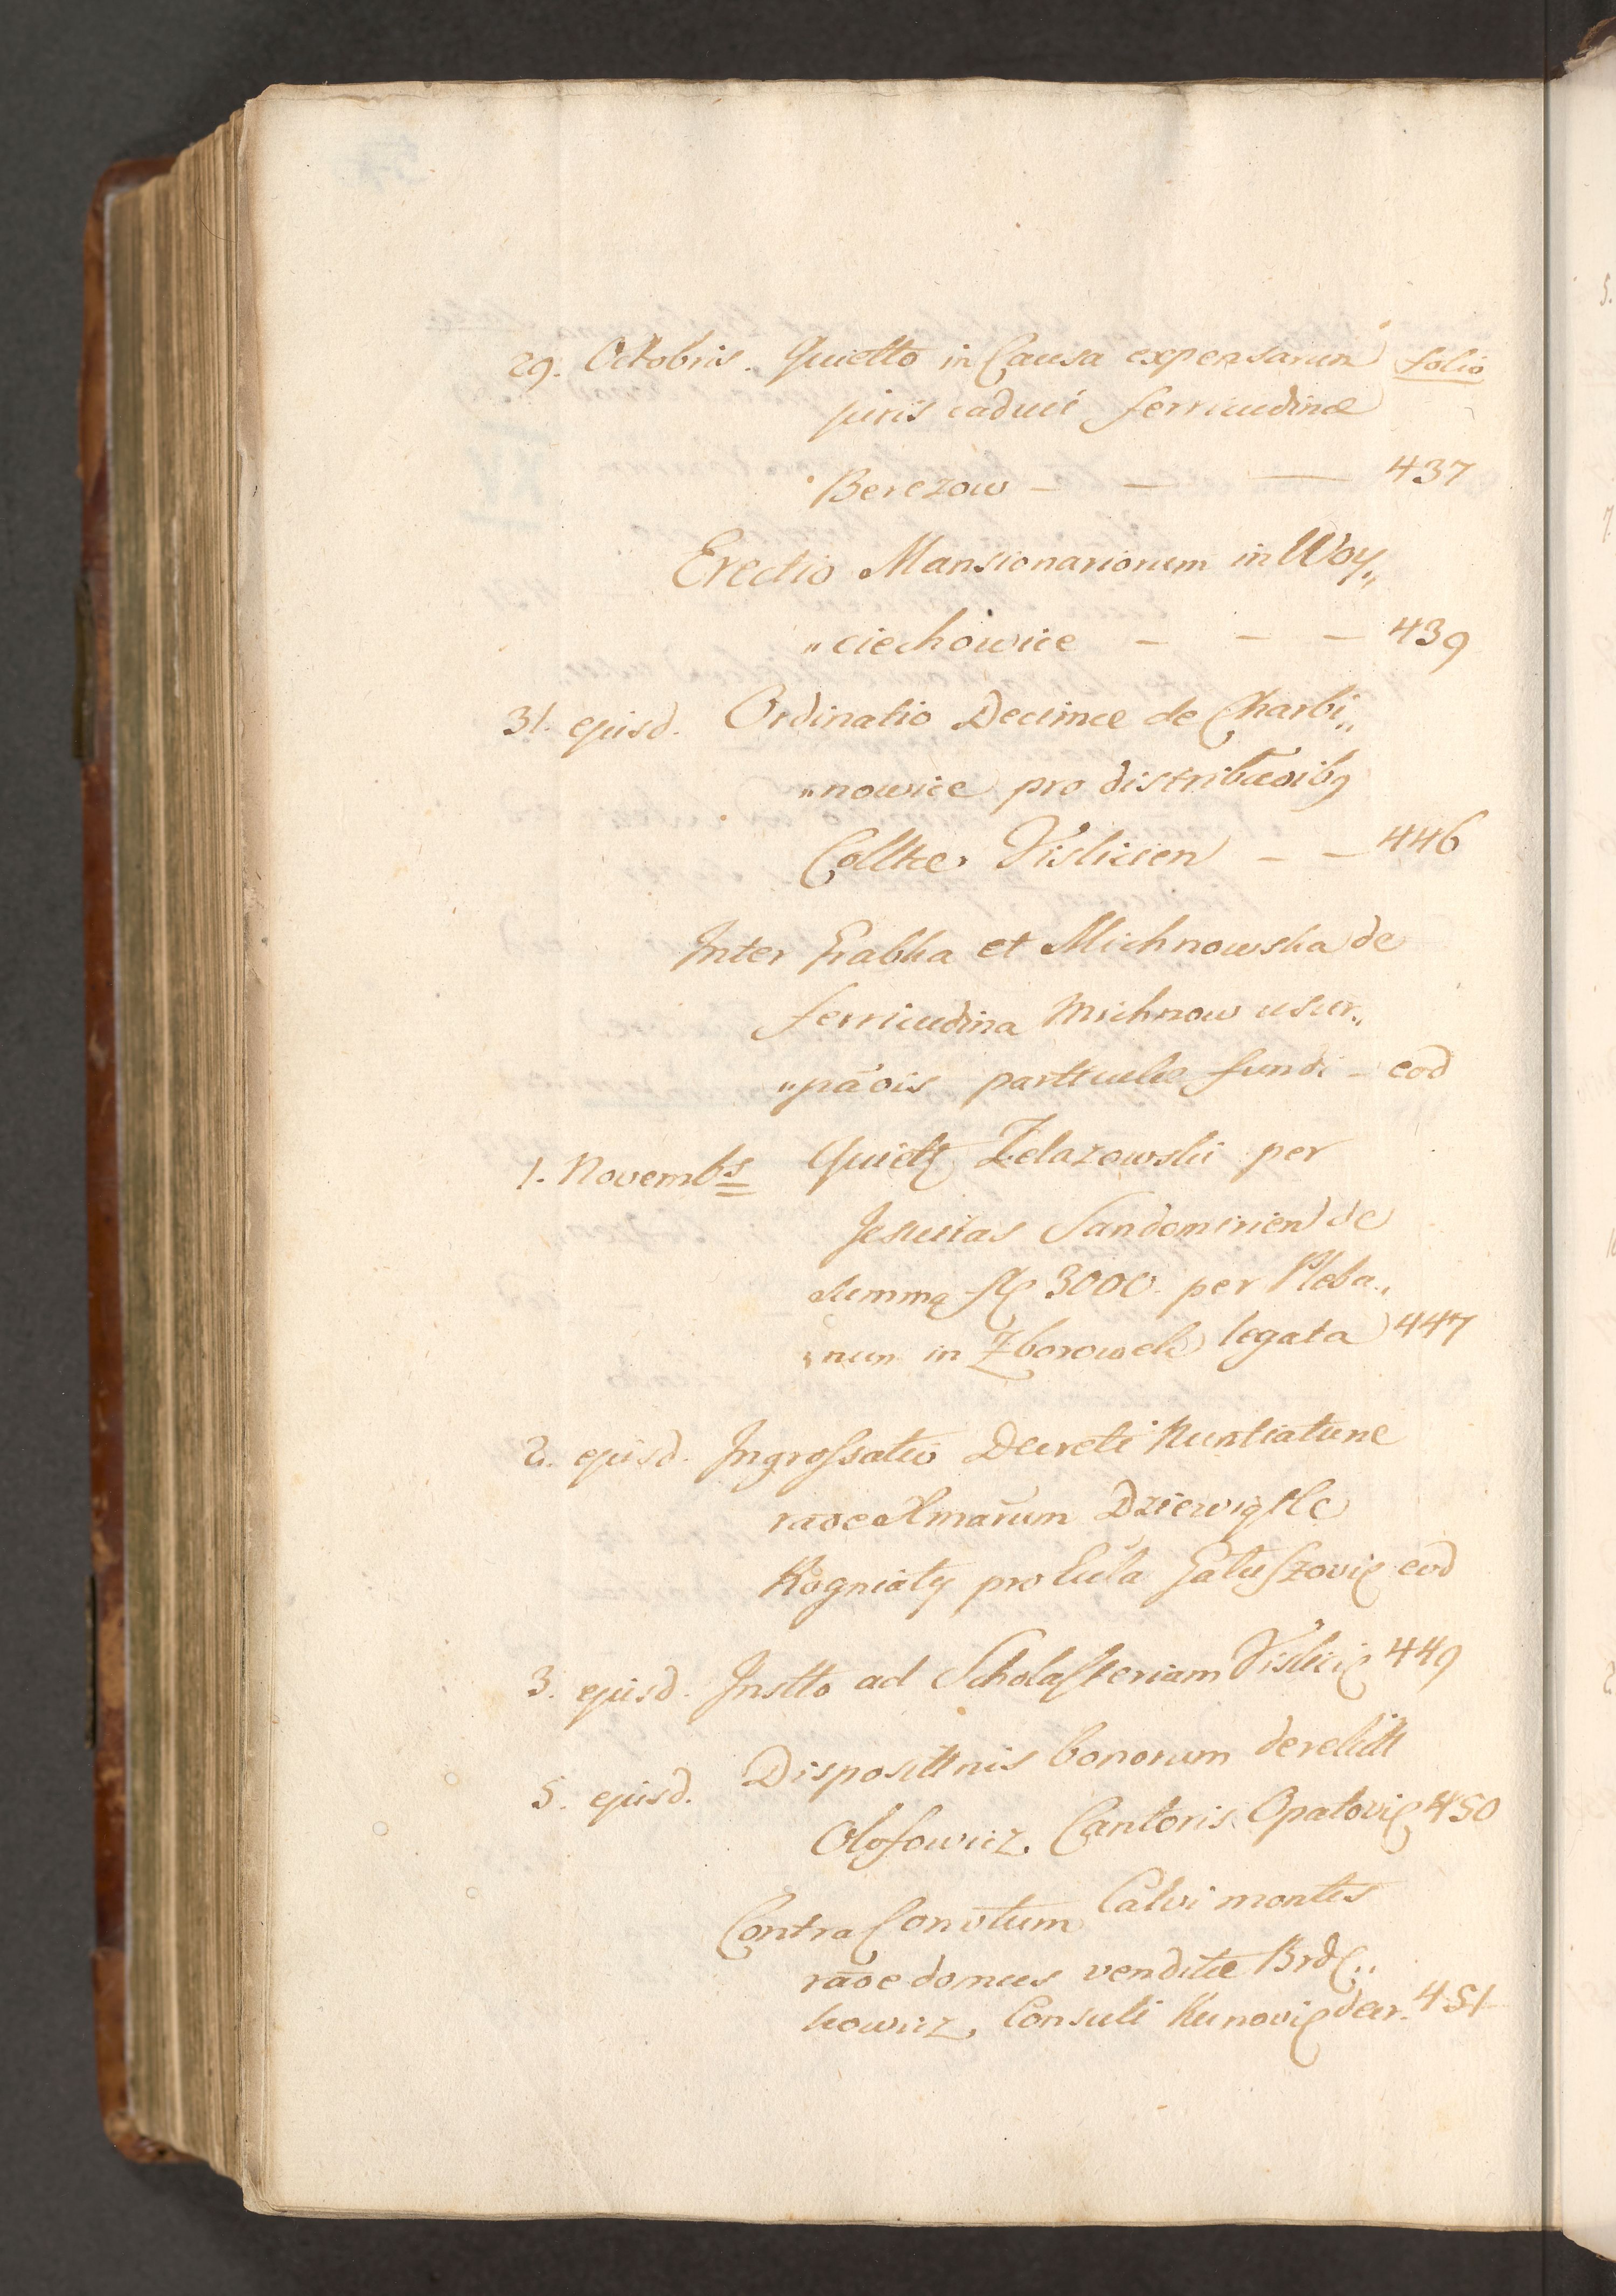 29. Octobris. Quietto in Causa expensarum folio
juris caduci ferricudinæ
Berezow — — — 437
Erectio Mansionariorum in Woy„
„ciechowice — — — 439
31. ejusd. Ordinatio Decimæ de Charbi„
„nowice pro distribūoibꝫ
Colltæ Vislicien — — 446
Inter Grabka et Michnowska de
ferricudina Michnow usur„
„pāois particulæ fundi — eod
1. Novembs Quietꝫ Zelazowski per
Jesuitas Sandomirien de
summa fl 3000 per Pleba„
„num in Zborowek legata 447
2. ejusd. Ingrossatio Decreti Nuntiaturæ
rāoe Xmarum Dziewiątle
Rogniaty pro Eccla Gatuszovic eod
3. ejusd. Instto ad Scholasteriam Vislicic 449
5. ejusd. Disposittnis bonorum derelictt
Olofowicz. Cantoris Opatovic 450
Contra Convtum Calvi montis
rāoe domus venditæ
kowicz, Consuli Kunovic decr. 451